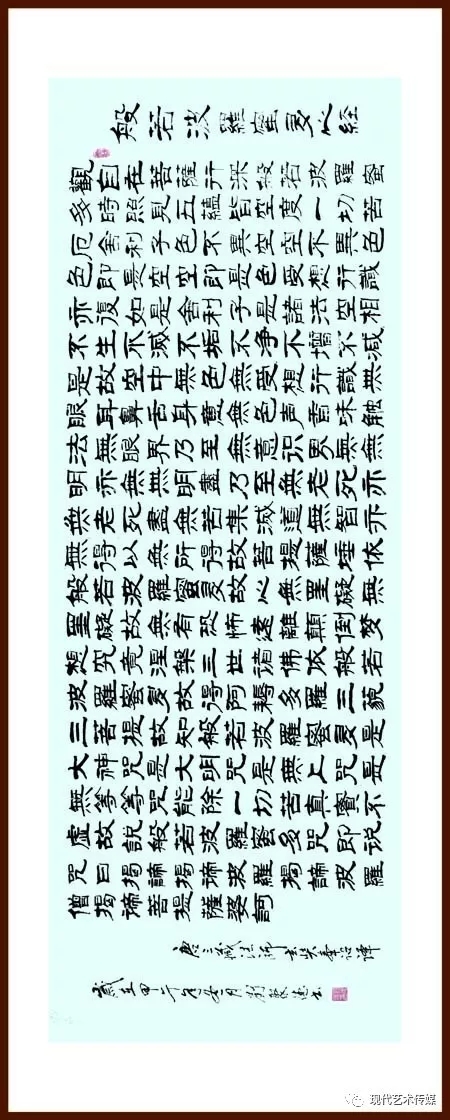 般若波羅蜜多心経
觀自在菩薩行深般若波羅蜜
多時照見五蘊皆空度一切苦
厄舍利子色不異空空不異色
色即是空空即是色受想行識
亦復如是舍利子是諸法空相
不生不滅不垢不净不增不減
是故空中無色無受想行識無
眼耳鼻舌身意無色声香味触
法無眼界乃至無意识界無無
明亦無無明盡乃至無老死亦
無老死盡無苦集滅道無智亦
無得以無所得故菩提薩埵依
般若波羅蜜多故心無罣礙無
罣礙故無有恐怖遠離顛倒梦
想究竟涅槃三世诸佛依般若
波羅蜜多故得阿耨多羅三藐
三菩提故知般若波羅蜜多是
大神咒是大明咒是無上咒是
無等等咒能除一切苦真實不
虛故説般若波羅蜜多咒即说
咒曰揭諦揭諦波羅揭諦波羅
僧揭諦菩提薩婆訶
唐三藏法师玄奘奉诏譯
歲在甲午年冬月
现代艺术传媒